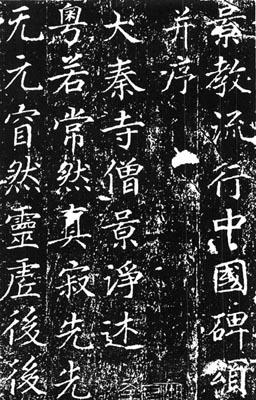 景教流行中國碑頌
并序
大秦寺僧景淨述
粵若常然真寂先先
无元窅然靈虛後後